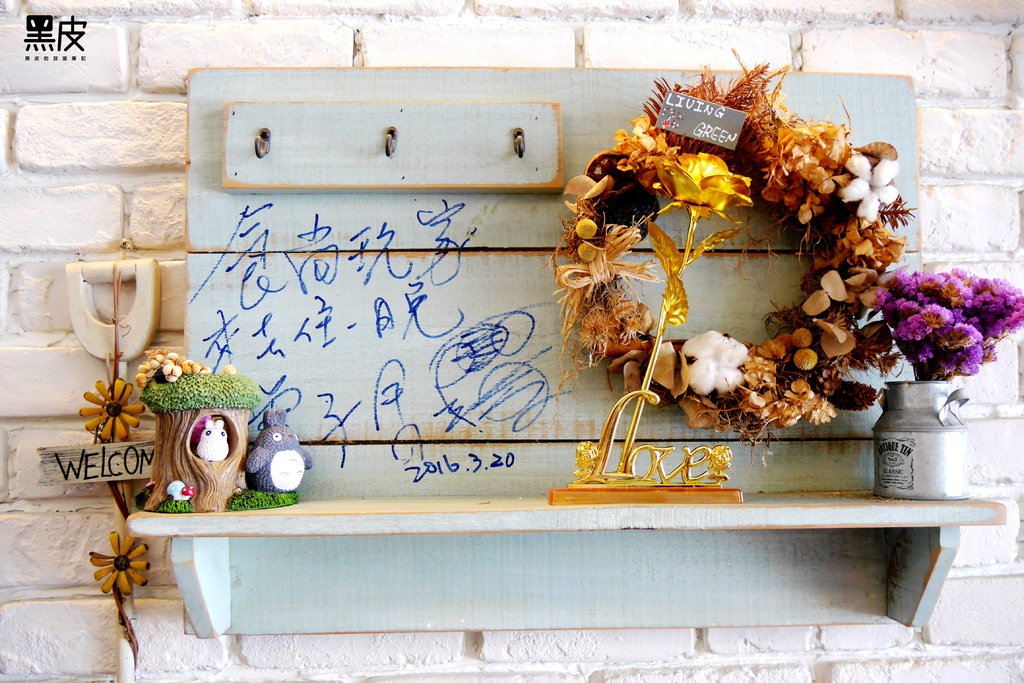 黑皮
黑皮的旅遊筆記
LIVING
GREEN
食尚玩家
來去住一晚
2016.3.20
WELCOM
Love
ANTIQUE TIN
No.1
CLASSIC